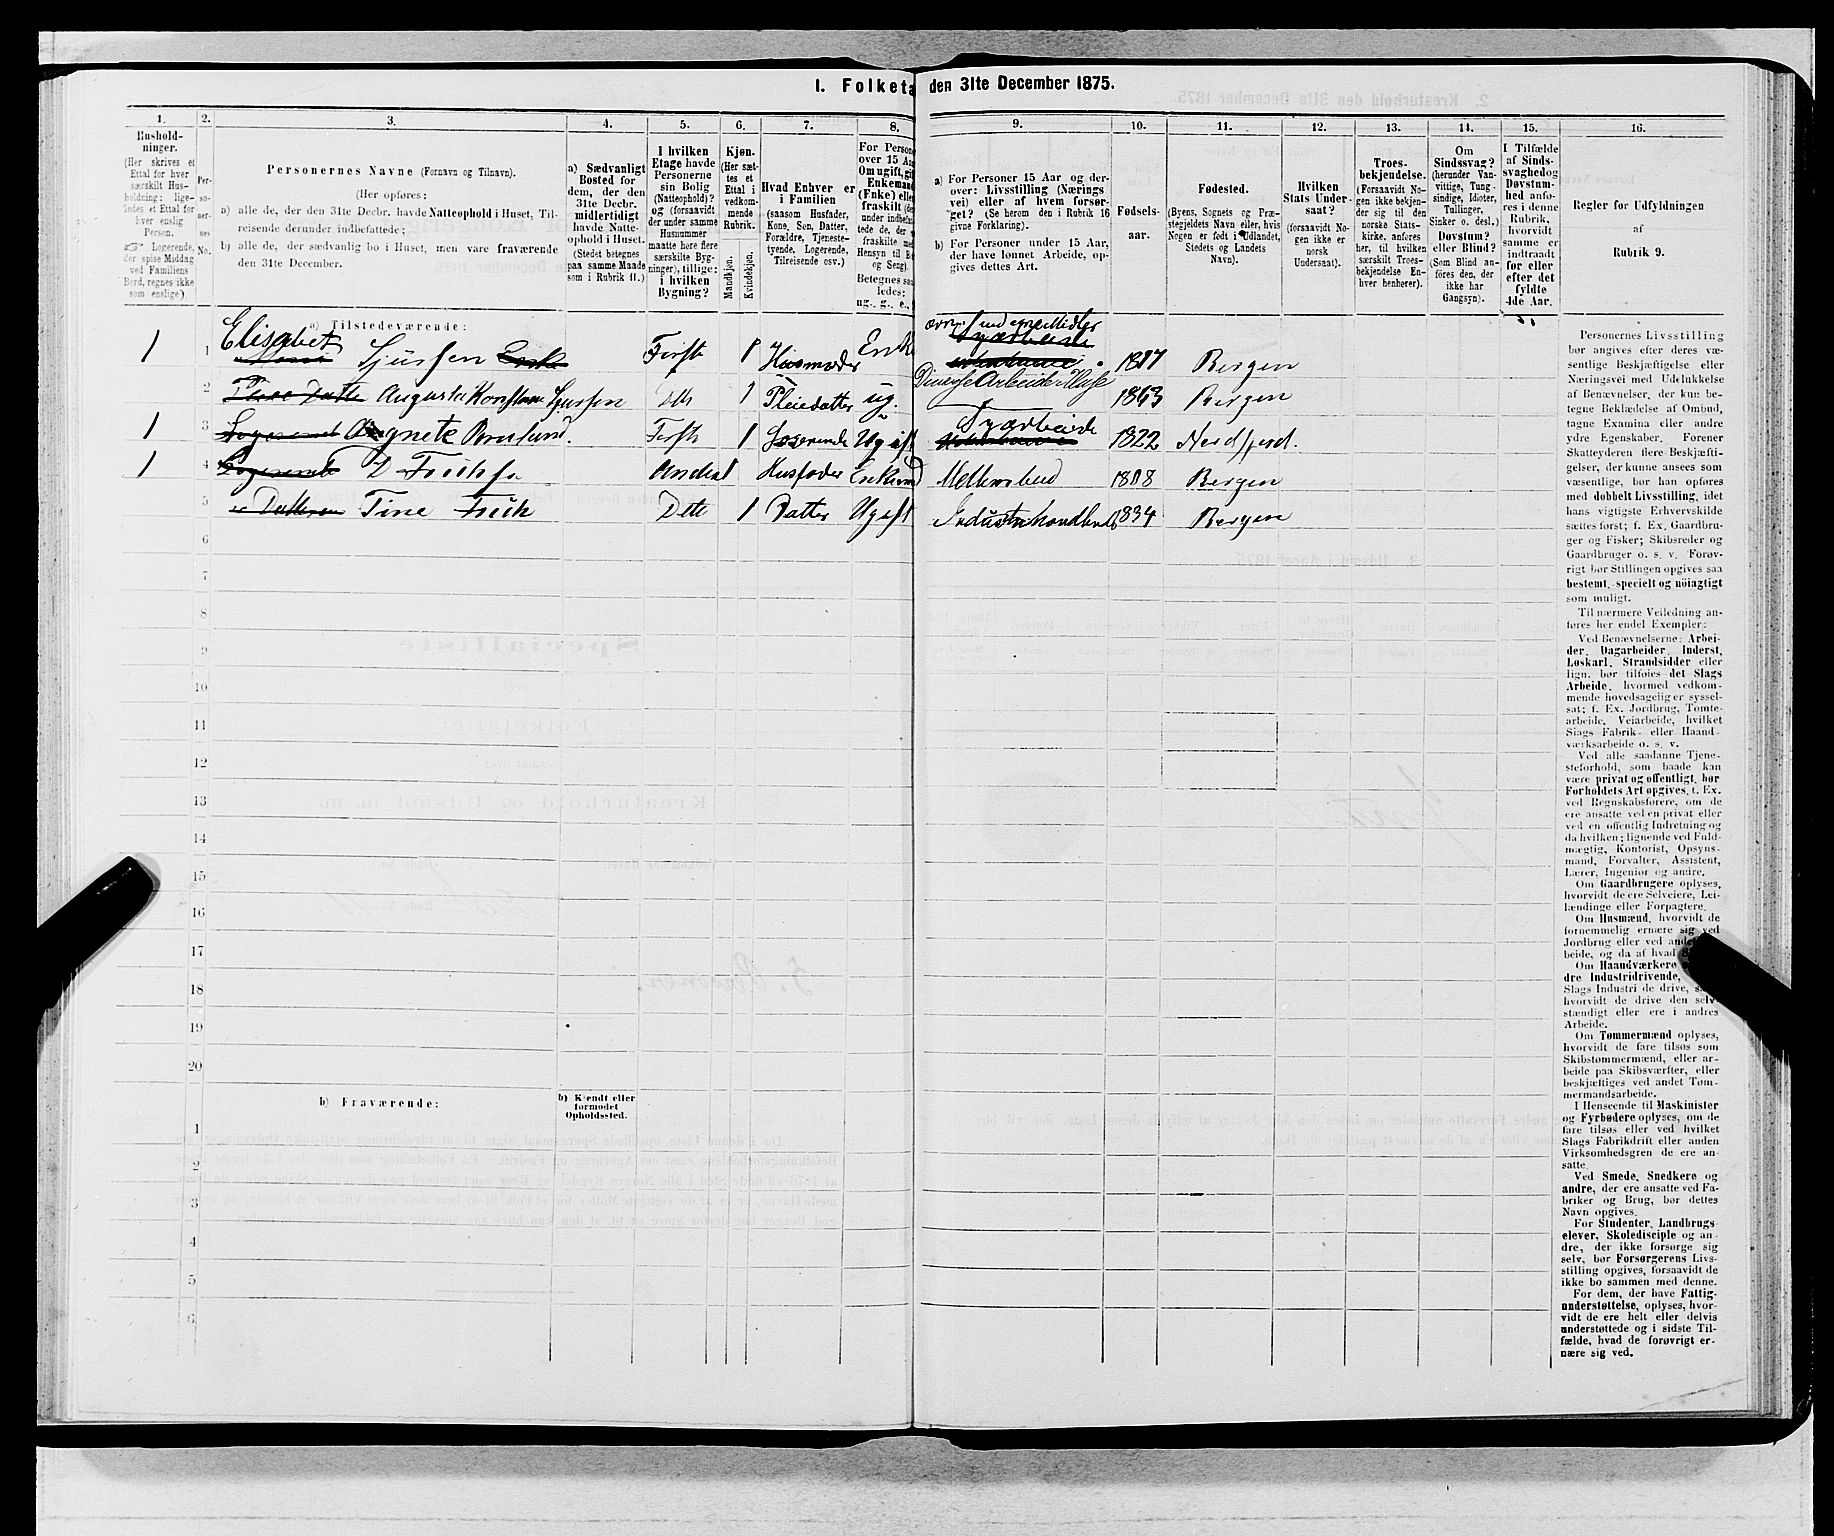 I. Folketæ den 31te December 1875.
1. 2. 3. 4. 5. 6. 7. 8. 9. 10. 11. 12. 13. 14. 15. 16.
Hushold-
ninger.
(Her skrives et
Ettal for hver
særskilt Hus-
holdning; lige-
ledes et Ettal for
hver enslig
Person.
☞ Logerende,
der spise Middag
ved Familiens
Bord, regnes ikke
som enslige).
Per-
so-
ner-
nes
No.
Personernes Navne (Fornavn og Tilnavn).
(Her opføres:
a) alle de, der den 31te Decbr. havde Natteophold i Huset, Til-
reisende derunder indbefattede;
b) alle de, der sædvanlig bo i Huset, men vare fraværende
den 31te December.
a) Sædvanligt
Bosted for
dem, der den
31te Decbr.
midlertidigt
havde Natte-
ophold i Huset.
(Stedet betegnes
paa samme Maade
som i Rubrik 11.)
I hvilken
Etage havde
Personerne
sin Bolig
(Natteophold)?
og (forsaavidt
der under samme
Husnummer
maatte høre flere
særskilte Byg-
ninger), tillige:
i hvilken
Bygning?
Kjøn.
(Her sæt-
tes et
Ettal i
vedkom-
mende
Rubrik.
Mandkjøn.
Kvindekjøn.
Hvad Enhver er
i Familien
(saasom Husfader,
Kone, Søn, Datter,
Forældre, Tjeneste-
tyende, Logerende,
Tilreisende osv.)
For Person
over 15 Aa
Om ugift, gif
Enkemand
(Enke) elle
fraskilt (de
under indbefat
tede de, der
fraskilte med
Hensyn til B
og Seng).
Betegnes saa
ledes:
ug., g., e.,
a) For Personer 15 Aar og der-
over: Livsstilling (Nærings
vei) eller af hvem forsør-
get? (Se herom den i Rubrik 16
givne Forklaring).
b) For Personer under 15 Aar,
der have lønnet Arbeide, op-
gives dettes Art.
Fødsels-
aar.
Fødested.
(Byens, Sognets og Præ-
stegjeldets Navn eller, hvis
Nogen er født i Udlandet,
Stedets og Landets
Navn).
Hvilken
Stats Under-
saat?
(forsaavidt No-
gen ikke er
norsk
Undersaat).
Troes-
bekjendelse.
(Forsaavidt No-
gen ikke bekjen-
der sig til den
norske Stats-
kirke, anføres
her, til hvilken
særskilt Troes-
bekjendelse En-
hver henhører).
Om
Sindssvag?
(herunder Van-
vittige, Tung-
sindige, Idioter,
Tullinger,
Sinker o. desl.)
Døvstum?
eller Blind?
(Som Blind an-
føres den, der
ikke har
Gangsyn).
I Tilfælde
af Sinds-
svaghed og
Døvstum-
hed anfø-
res i denne
Rubrik,
hvorvidt
samme er
indtraadt
før eller
efter det
fyldte
4de Aar.
Regler for Udfyldningen
af
Rubrik 9.
a) Tilstedeværende:
1 1 Elisabet Sjursen Enke Første 1 Husmoder Enke Syarbeide 1817 Bergen
2 Pleie Datter Augusta Konstanse Sjursen Dtt 1 Pleiedatter ug. Diverse Arbeide i Huse 1863 Bergen
1 3 Logerende Agnete Første 1 Losjerende Ugift Syarbeide 1822 Nordfjord.
1 4 Logerende Andre 1 Husfader Enkemd 1808 Bergen
5 Datteren Tine Dette 1 Datter Ugift Industrihandlende 1834 Bergen
6
7
8
9
10
11
12
13
14
15
16
17
18
19
20
b) Fraværende:
b) Kjendt eller
formodet
Opholdssted.
1
2
3
4
5
6
Personernes Livsstilling
bør angives efter deres væ-
sentlige Beskjæftigelse eller
Næringsvei med Udelukkelse
af Benævnelser, der kun be-
tegne Beklædelse af Ombud,
tagne Examina eller andre
ydre Egenskaber. Forener
Skatteyderen flere Beskjæfti-
gelser, der kunne ansees som
væsentlige, bør han opføres
med dobbelt Livsstilling, idet
hans vigtigste Erhvervskilde
sættes først; f. Ex. Gaardbru-
ger og Fisker; Skibsreder og
Gaardbruger o. s. v. Forøv-
rigt bør Stillingen opgives saa
bestemt, specielt og nöiagtigt
som muligt.
Til nærmere Veiledning an-
føres her endel Exempler:
Ved Benævnelserne: Arbei-
der, Dagarbeider, Inderst,
Løskarl, Strandsidder eller
lign. bør tilføies det Slags
Arbeide, hvormed vedkom-
mende hovedsagelig er syssel-
sat; f. Ex. Jordbrug, Tomte-
arbeide, Veiarbeide, hvilket
Slags Fabrik- eller Haand-
værksarbeide o. s. v.
Ved alle saadanne Tjene-
steforhold, som baade kan
være privat og offentligt, bør
Forholdets Art opgives, f. Ex.
ved Regnskabsførere, om de
ere ansatte ved en privat eller
ved en offentlig Indretning og
da hvilken; lignende ved Fuld-
mægtig, Kontorist, Opsyns-
mand, Forvalter, Assistent,
Lærer, Ingeniør og andre.
Om Gaardbrugere oplyses,
hvorvidt de ere Selveiere, Lei-
lændinge eller Forpagtere.
Om Husmænd, hvorvidt de
fornemmelig ernære sig ved
Jordbrug eller ved ande
beide, og da af hvad
Om Haandværkere
dre Industridrivende,
Slags Industri de drive, s
hvorvidt de drive den selv-
stændigt eller ere i andres
Arbeide.
Om Tømmermænd oplyses,
hvorvidt de fare tilsøs som
Skibstømmermænd, eller ar-
beide paa Skibsværfter, eller
beskjæftiges ved andet Tøm-
mermandsarbeide.
I Henseende til Maskinister
og Fyrbødere oplyses, om de
fare tilsøs eller ved hvilket
Slags Fabrikdrift eller anden
Virksomhedsgren de ere an-
satte.
Ved Smede, Snedkere og
andre, der ere ansatte ved Fa-
briker og Brug, bør dettes
Navn opgives.
For Studenter, Landbrugs-
elever, Skoledisciple og an-
dre, der ikke forsørge sig
selv, bør Forsørgerens Livs-
stilling opgives, forsaavidt de
ikke bo sammen med denne.
For dem, der have Fattig-
understøttelse, oplyses, hvor-
vidt de ere helt eller delvis
understøttede og i sidste Til-
fælde, hvad de forøvrigt er-
nære sig ved.